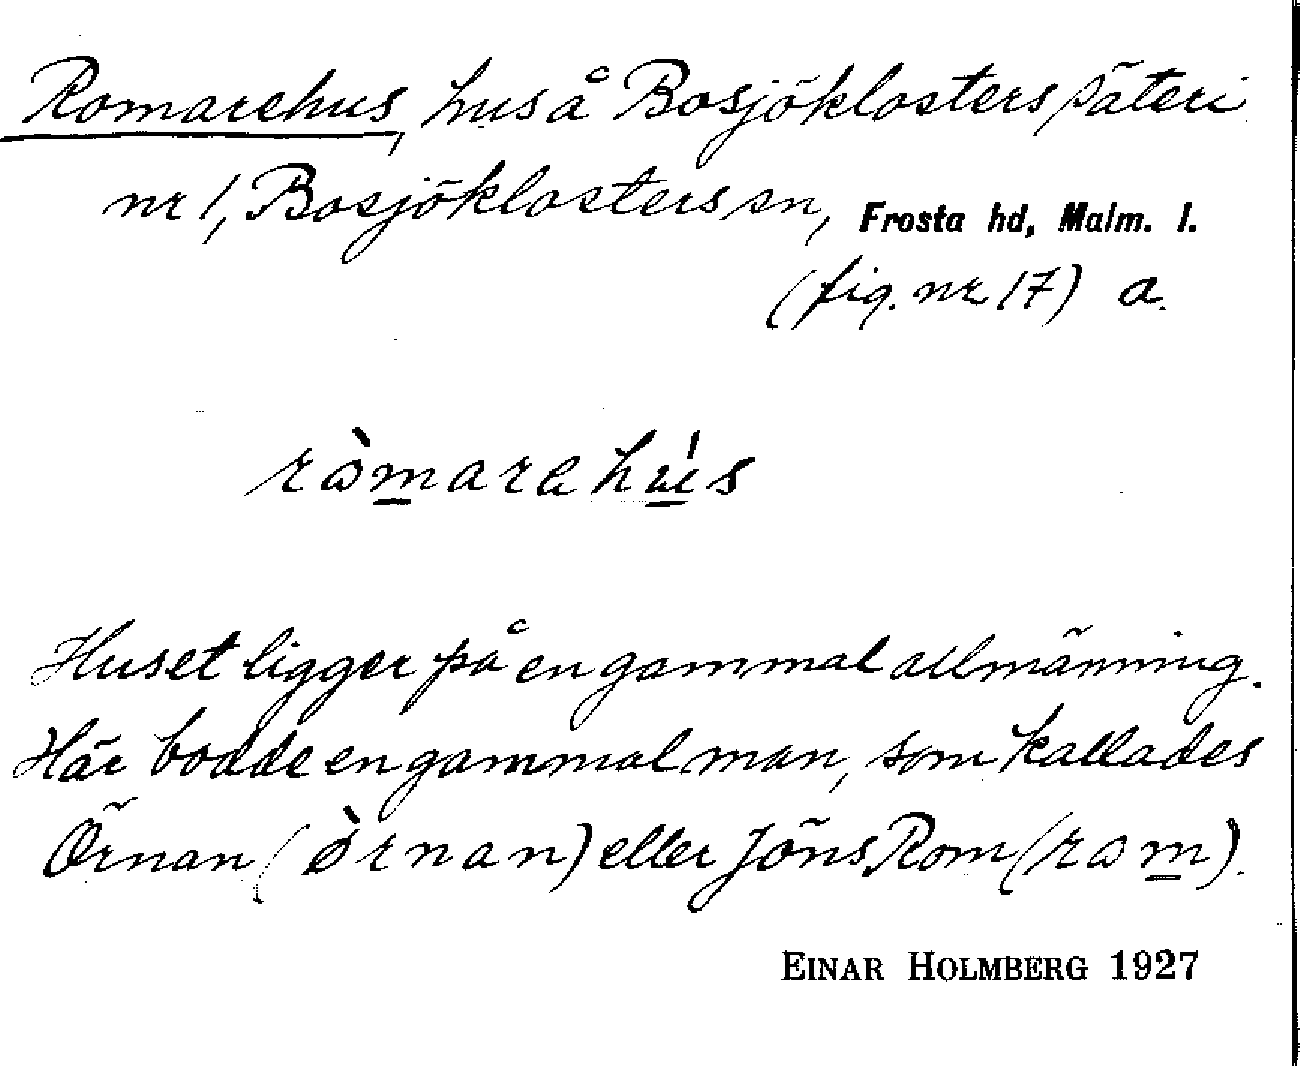 Romarehus, hus å Bosjöklosters säteri
nr 1, Bosjöklosters sn, Frosta hd, Malm. l.
(fig. nr 17) a.
ròmarahús
Huset ligger på en gammal allmänning.
Här bodde en gammal man, som kallades
Örnan (ö̀rnan) eller Jöns Rom (rom).
EINAR HOLMBERG 1927